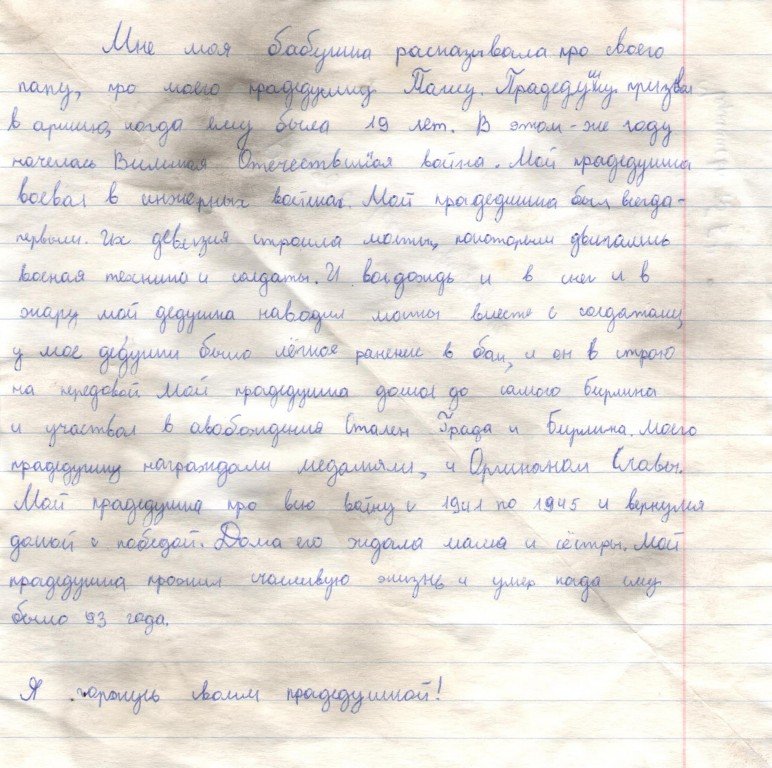 Мне моя бабушка расказывала про своего
папу, про моего прадедушку Пашу. Прадедушку призвал
в армию, когда ему была 19 лет. В этом-же году
началась Виликая Отечествиная война. Мой прадедушка
воевал в инжерных войсках. Мой прадедушка был всегда-
первым. Их девизия строила мосты, покоторым двигались
военая техника и солдаты. И в дождь и в снег и в
жару мой дедушка наводил мосты вместе с солдатами,
у мое дедушки было лёгкое ранение в бои, и он в строю
на передовой. Мой прадедушка дошол до самого Бирлина
и участвал в авобождения Стален Града и Бирлина. Моего
прадедушку награждали медалями, и Орнинаном Славы.
Мой прадедушка про всю войну с 1941 по 1945 и вернулся
домой с победой. Дома его ждала мама и сёстры. Мой
прадедушка прожил счасливую жизнь и умер когда ему
было 93 года.
Я горжусь своим прадедушкой!